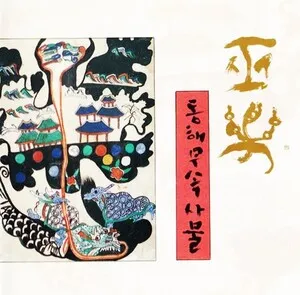 巫樂
동해무속사물